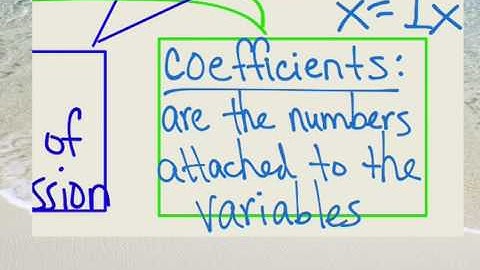 x=1x
coefficients:
are the numbers
attached to the
variables
of
ssion